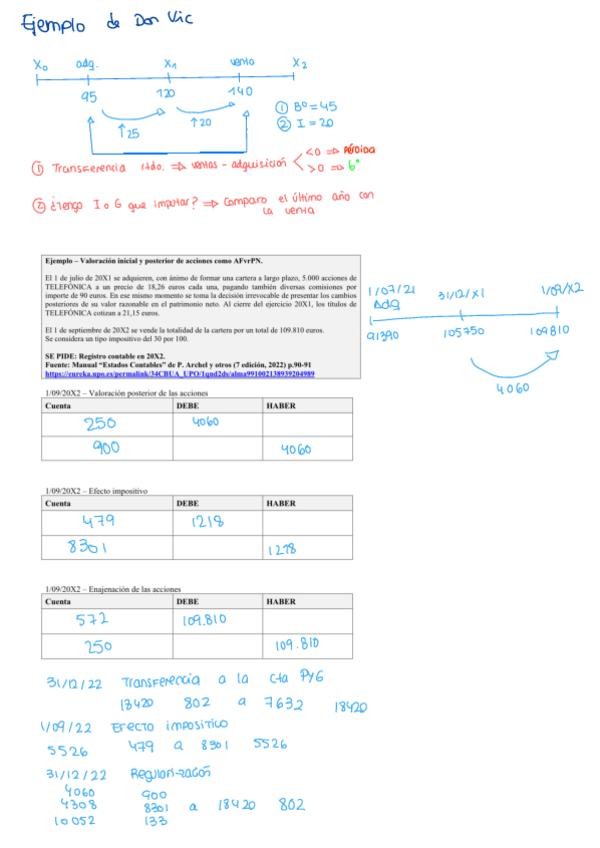 Ejemplo de Don Vic
X0 adq. X1 venta X2
95 120 140
↑25 ↑20
① Bº = 45
② I = 20
① Transferencia rtdo. ⇒ ventas - adquisición < <0 ⇒ PÉRDIDA
>0 ⇒ bº
② ¿Tengo I o G que imputar? ⇒ Comparo el último año con
la venta
Ejemplo – Valoración inicial y posterior de acciones como AFvrPN.
El 1 de julio de 20X1 se adquieren, con ánimo de formar una cartera a largo plazo, 5.000 acciones de
TELEFÓNICA a un precio de 18,26 euros cada una, pagando también diversas comisiones por
importe de 90 euros. En ese mismo momento se toma la decisión irrevocable de presentar los cambios
posteriores de su valor razonable en el patrimonio neto. Al cierre del ejercicio 20X1, los títulos de
TELEFÓNICA cotizan a 21,15 euros.
El 1 de septiembre de 20X2 se vende la totalidad de la cartera por un total de 109.810 euros.
Se considera un tipo impositivo del 30 por 100.
SE PIDE: Registro contable en 20X2.
Fuente: Manual "Estados Contables" de P. Archel y otros (7 edición, 2022) p.90-91
https://eureka.upo.es/permalink/34CBUA_UPO/1qnd2ds/alma991002138939204989
1/07/21 31/12/X1 1/09/X2
Adq
91390 105750 109810
4060
1/09/20X2 – Valoración posterior de las acciones
Cuenta DEBE HABER
250 4060
900 4060
1/09/20X2 – Efecto impositivo
Cuenta DEBE HABER
479 1218
8301 1218
1/09/20X2 – Enajenación de las acciones
Cuenta DEBE HABER
572 109.810
250 109.810
31/12/22 Transferencia a la cta PyG
18420 802 a 7632 18420
1/09/22 Efecto impositico
5526 479 a 8301 5526
31/12/22
4060 900
4308 8301 a 18420 802
10052 133